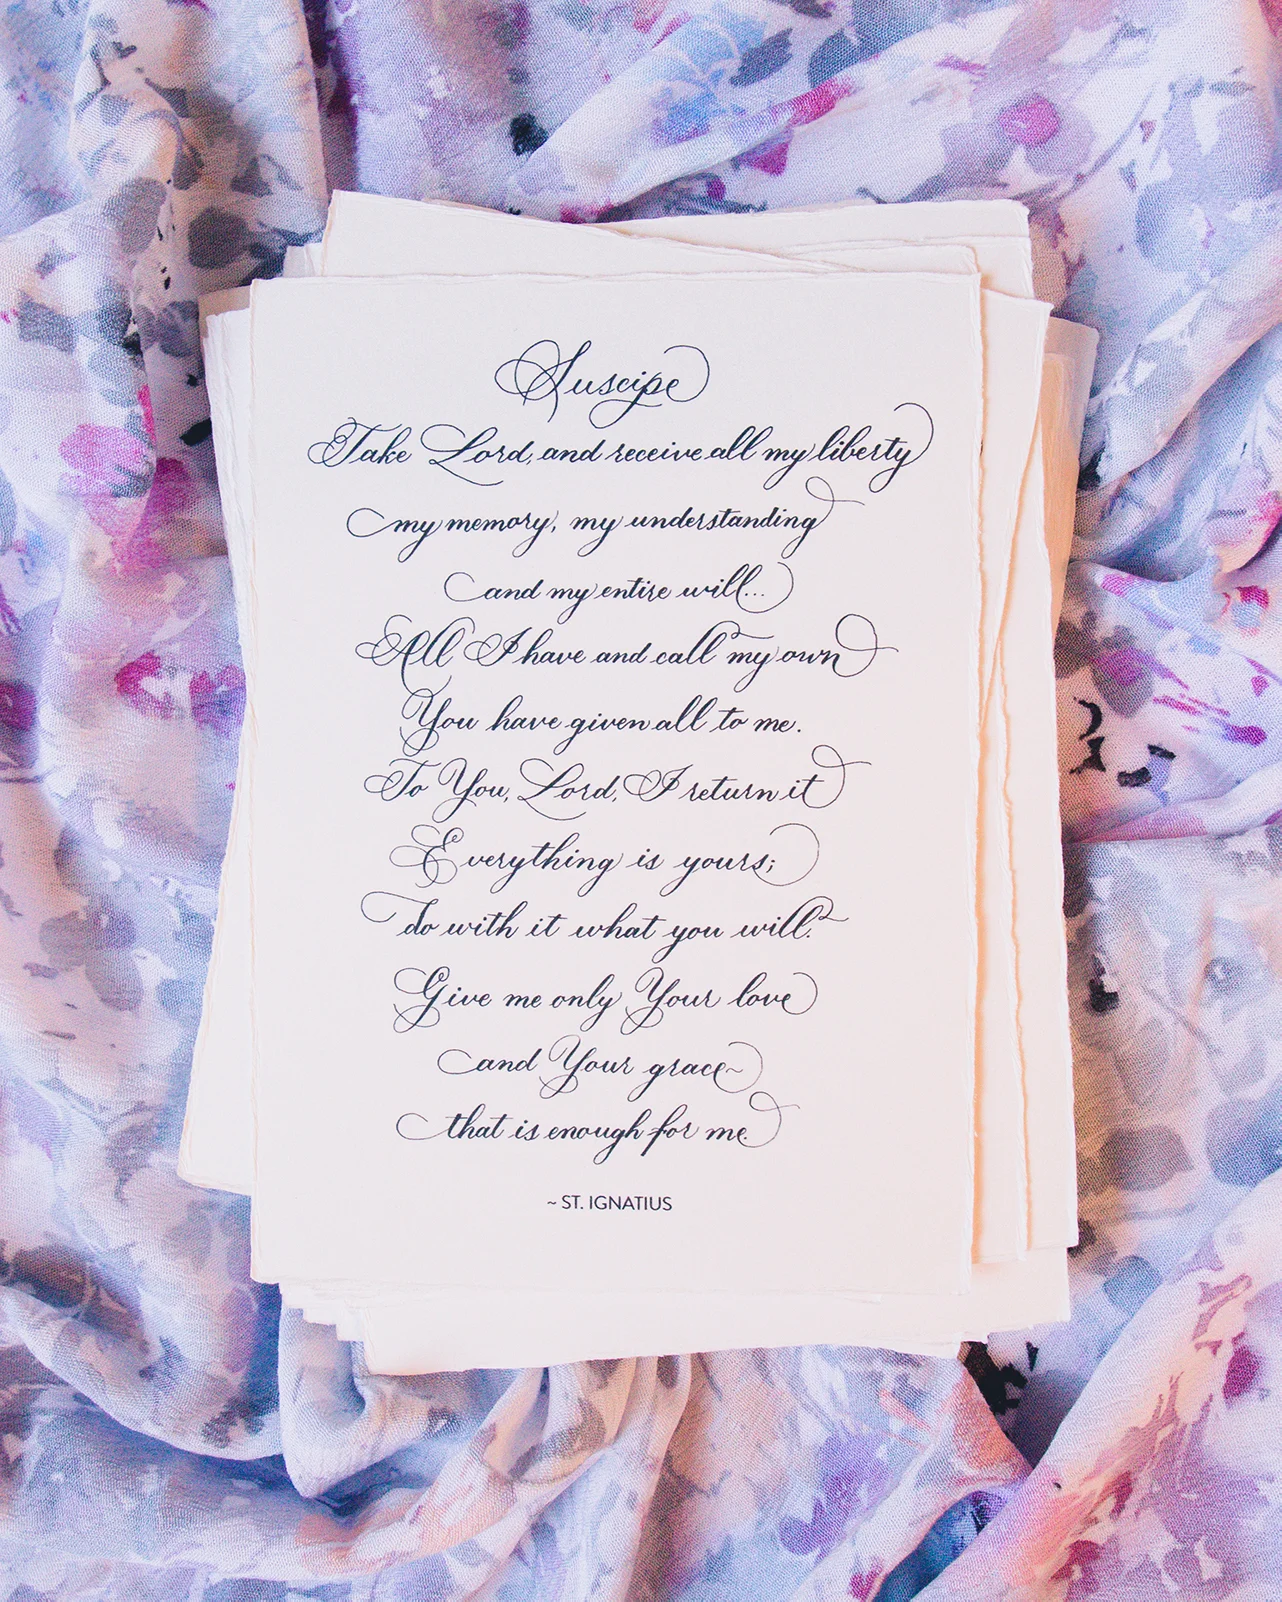 Suscipe
Take Lord, and receive all my liberty
my memory, my understanding
and my entire will...
All I have and call my own
You have given all to me.
To You, Lord, I return it
Everything is yours;
do with it what you will.
Give me only Your love
and Your grace~
that is enough for me.
~ ST. IGNATIUS